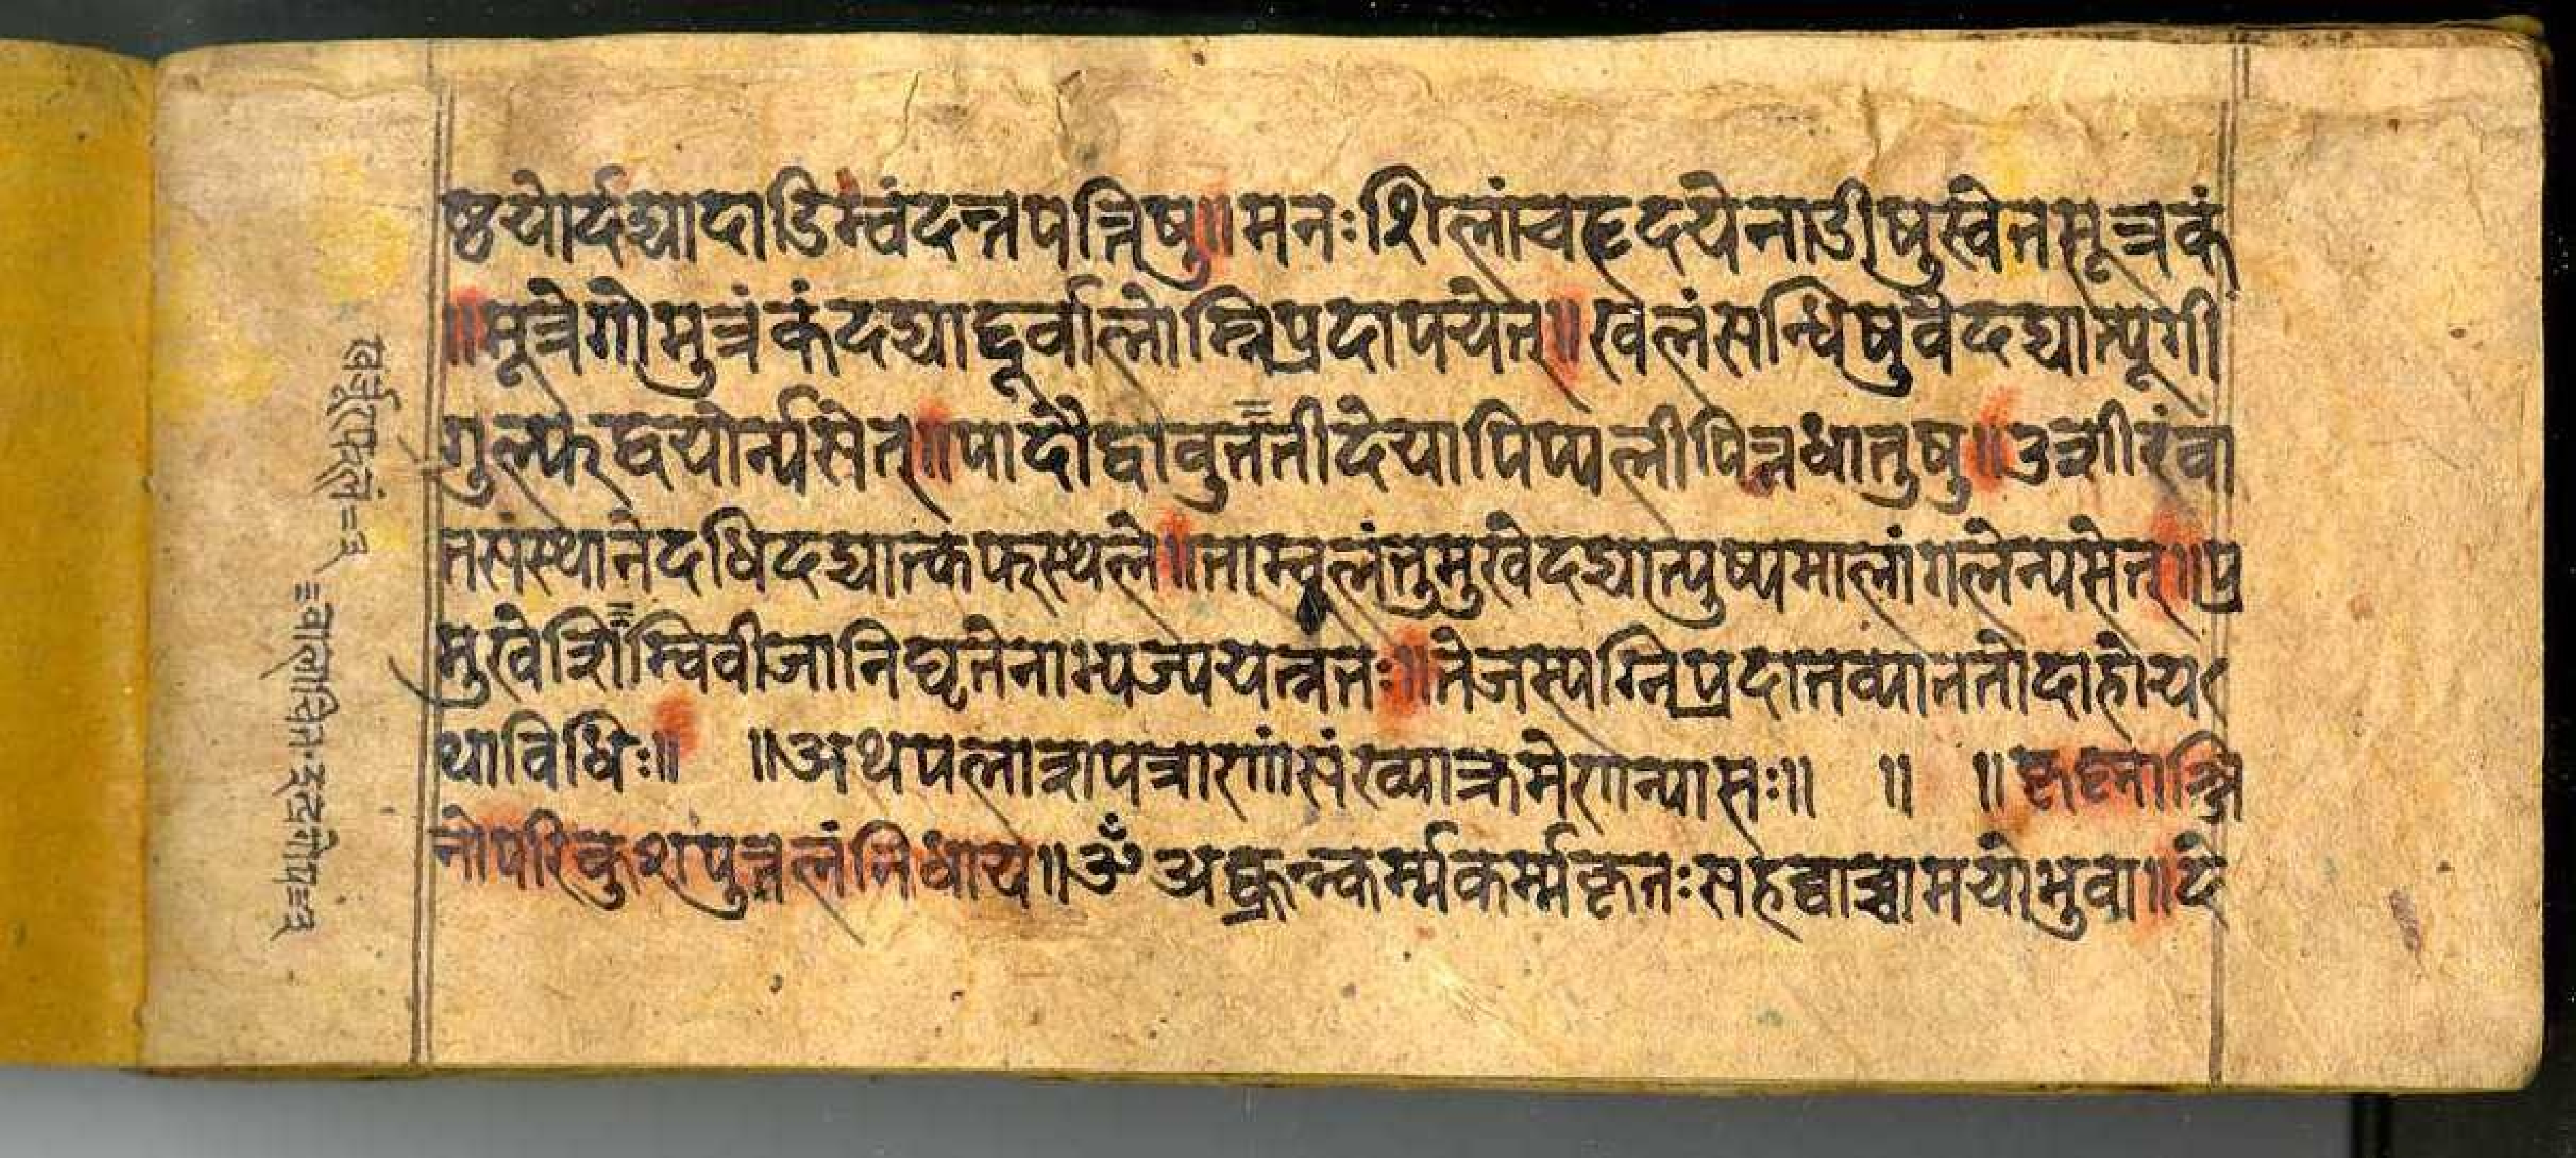 ष्ठयोर्दद्यादाडिम्वंदन्तपन्तिषु॥मनःशिलांचहृदयेनाडीषुस्वेतसूत्रकं
॥मूत्रेगोमुत्रंकंदद्याद्दूर्वालोम्निप्रदापयेत्॥खलंसन्धिषुवेदद्यात्पूगी
गुल्फेद्वयोर्न्यसेत्॥पादौद्वावुन्नतीदेयापिप्पलीपित्तधातुषु॥उशीरंवा
तसंस्थानेदधिदद्यात्कफस्थले॥ताम्वूलंतुमुखेदद्यात्पुष्पमालांगलेन्यसेत्॥प्र
मुखेशिम्विवीजानिघृतेनाभ्यज्ययत्नतः॥तेजस्यग्निप्रदातव्याततोदाहोय
थाविधिः॥ ॥अथपलाशपत्राणांसंख्याक्रमेणन्यासः॥ ॥ ॥
नोपरिकुशपुत्तलंनिधाय॥ॐ अक्रन्कर्म्मकर्म्मकृतःसहवाचामयोभुवा॥दे